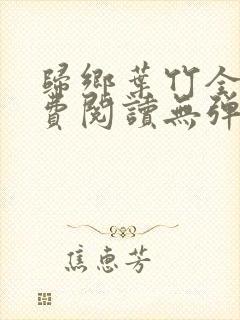 歸鄉葉竹全
費閱讀無彈
焦惠芳